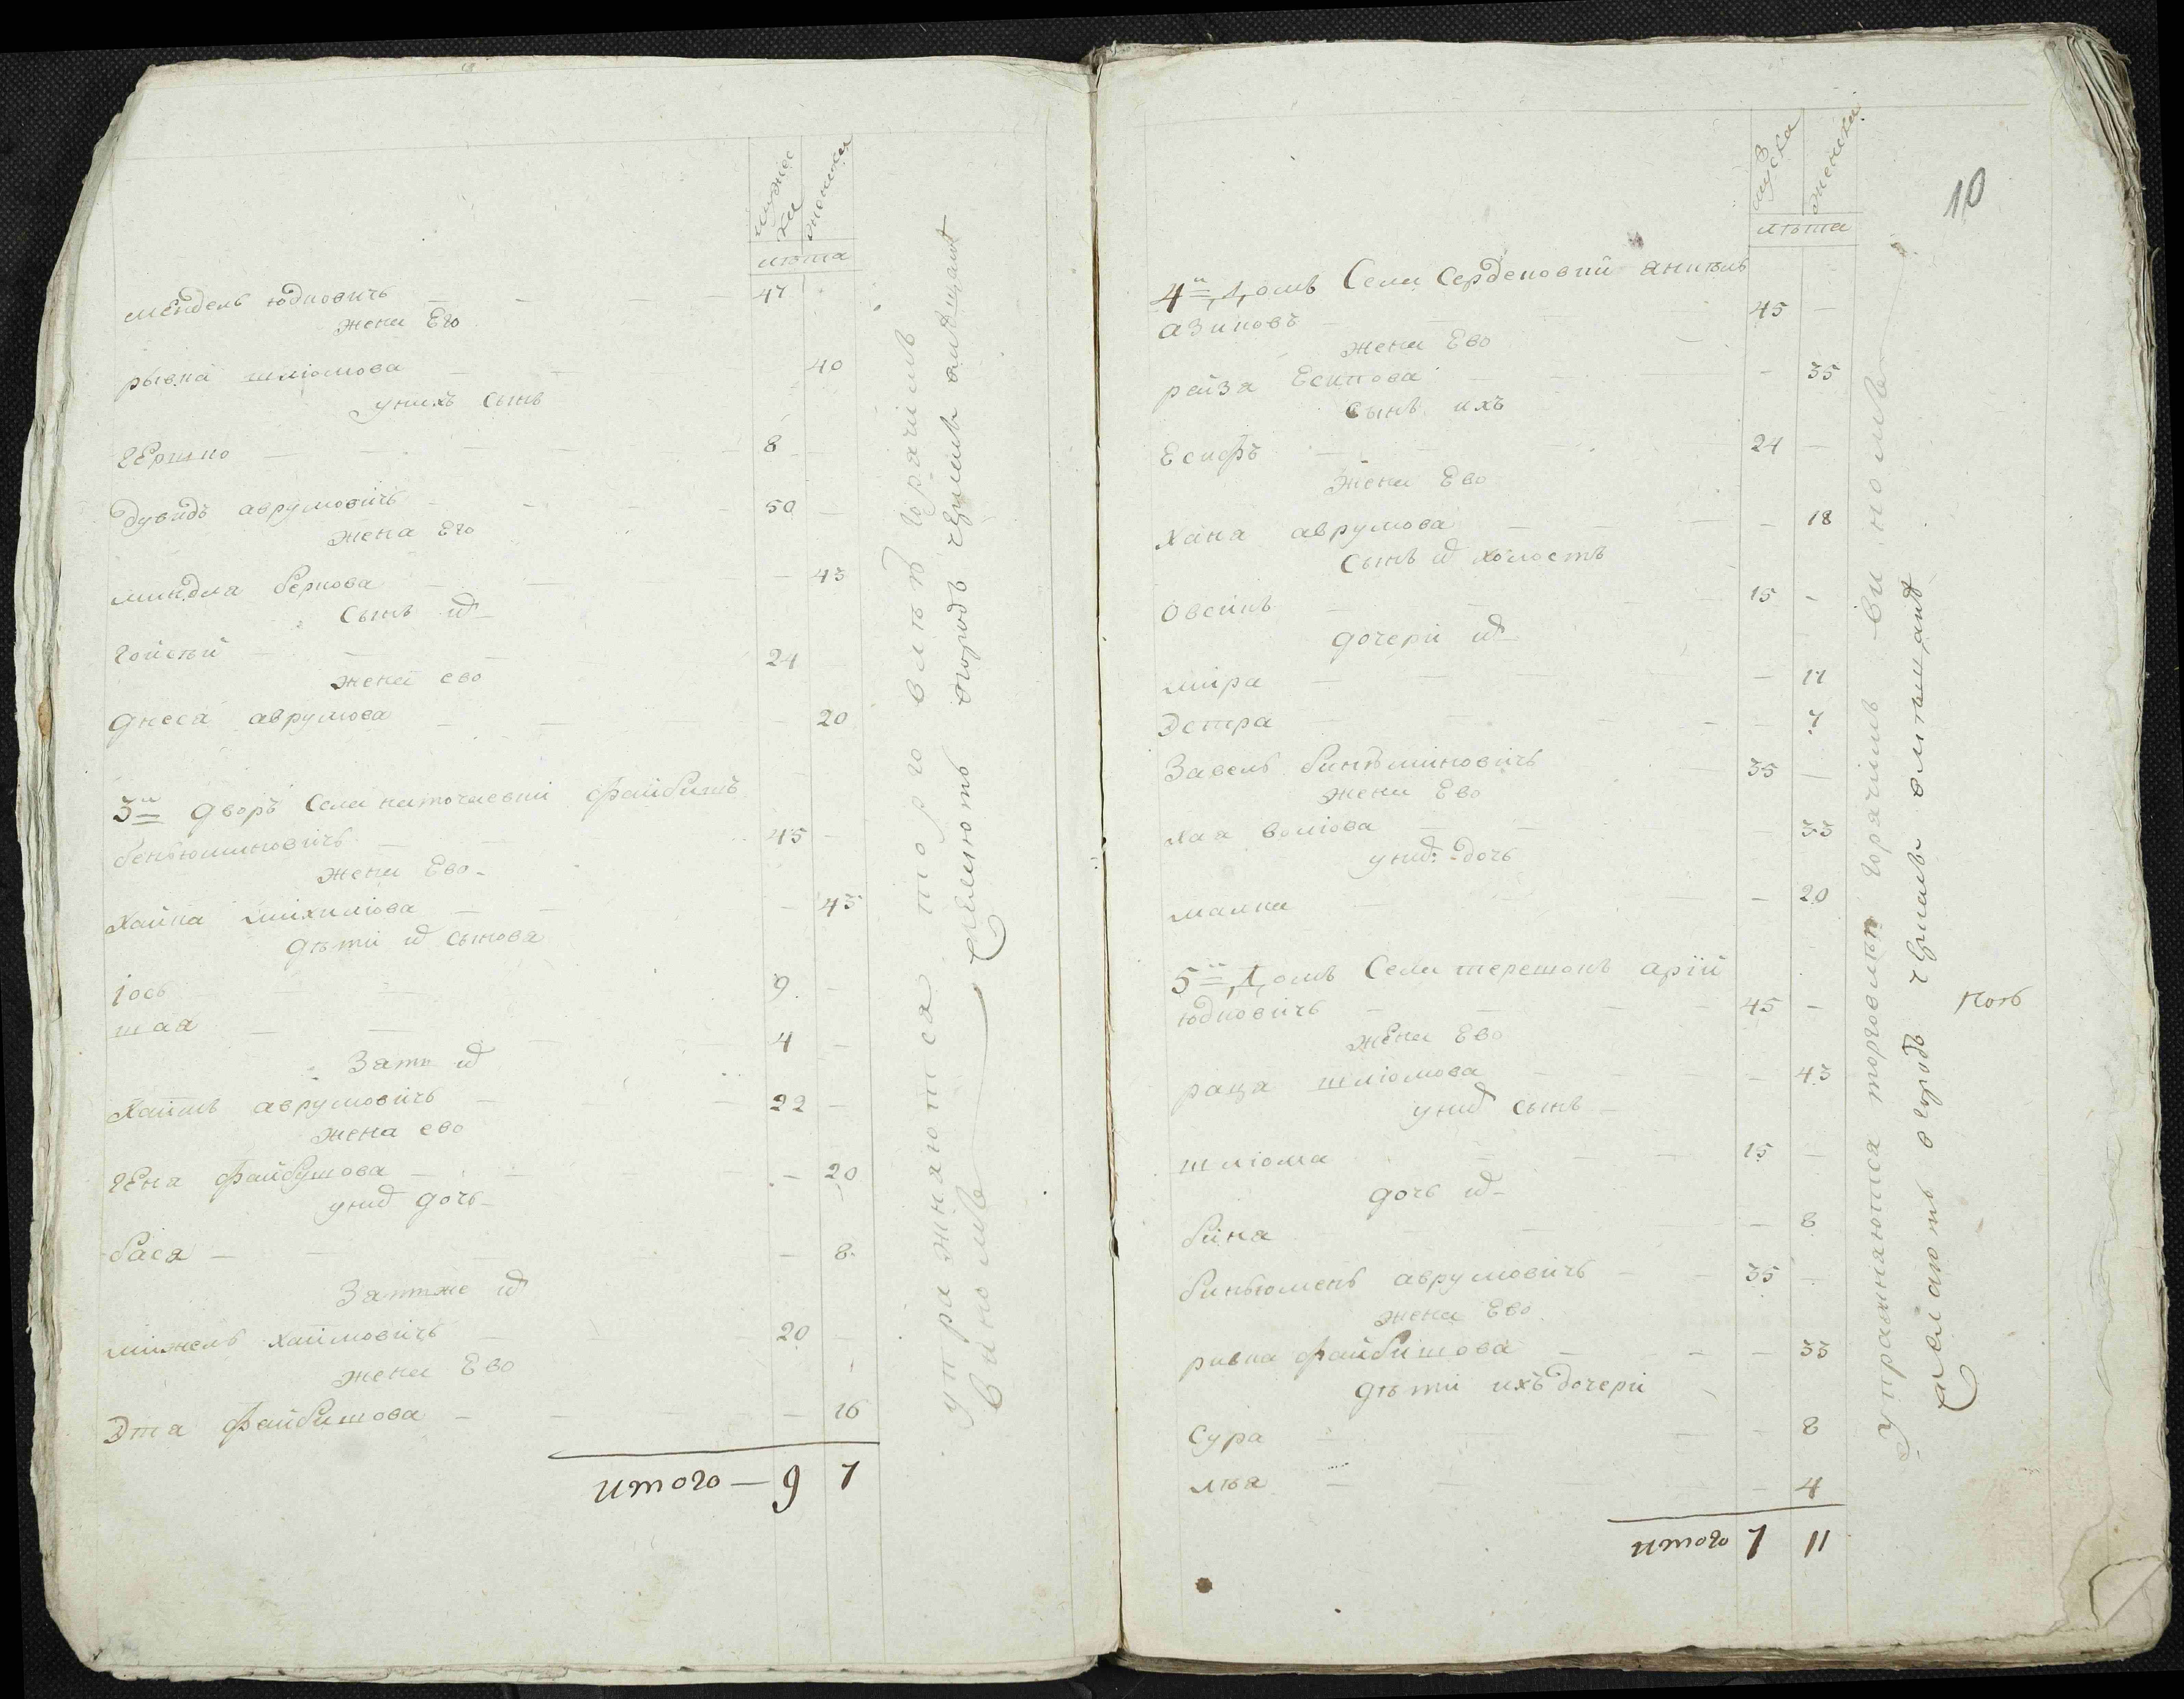 мужес
ки
женски
лѣта
мендель юдковичь — — — 47
жена Его
рывка шліомова — — 40
унихъ сынъ
гершко — — — 8
дувидъ аврумовичь — — 50 —
жена Его
миндля беркова — — — 43
Сынъ их
гойсѣй — — 24
жена ево
днеса аврумова — — 20
3й дворъ Села каточаевки файбишъ
беньюминовичь — 45 —
жена Ево
Хайка михиліова — — 43
дѣти их сынова
Іось — — 9 —
шая — — 4 —
Зать их
Хаимъ аврумовичь — — 22 —
жена ево
гена файбушова — — 20
уних дочь
бася — — — 8
Затьже их
мижель хаимовичь — 20 —
жена Ево
Эта файбишова — — — 16
итого — 9 7
упражняютса торговлѣю горячимъ
виномъ
Селяютъ огородъ
мужска
женска
лѣта
10
4й домъ Села Сердековки аншель
азиковъ — 45 —
жена Ево
райза Есипова — — 35
сынъ ихъ
Есифъ — 24 —
жена Ево
Хана аврумова — — — 18
Сынъ их холостъ
Овсѣйъ — 15 —
дочери их
мира — — — 17
Эстра — — — 7
Завель биньминовичь — 35 —
жена Ево
хая воліова — — 33
уних дочь
малка — — 20
5й домъ Села терешокъ арій
юдковичь — — 45 —
жена Ево
раца шліомова — — 43
уних сынъ
шліома — — 15 —
дочь их
бина — — — 8
биньюменъ аврумовичь — — 35 —
жена Ево
ривка файбишова — — — 33
дѣти ихъ дочери
Сура — — — 8
лѣя — — — 4
итого 7 11
упражняютса торговлѣю горячимъ виномъ